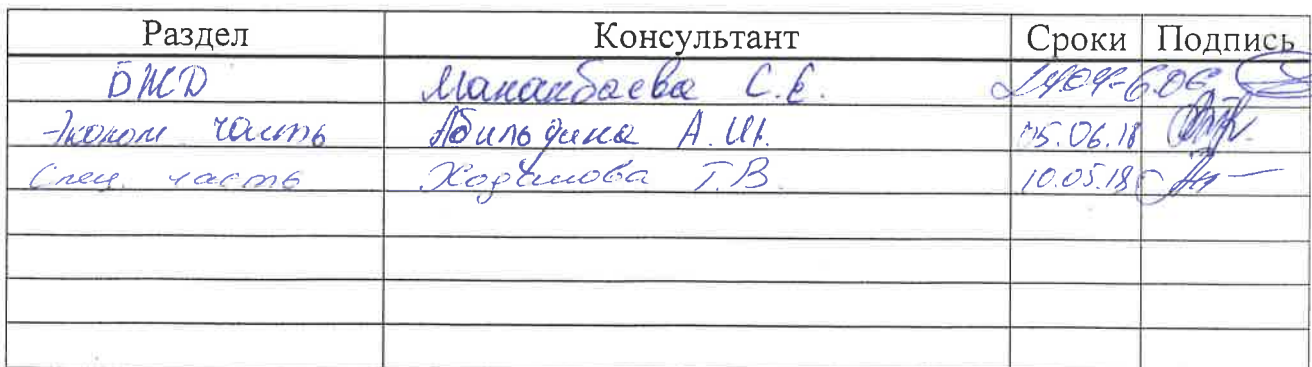 Раздел Консультант Сроки Подпись
БЖД Манакбаева С.Е. 24.04-6.06
Эконом часть Абильдина А.Ш. 05.06.18
Спец. часть Ходимова Т.В. 10.05.18